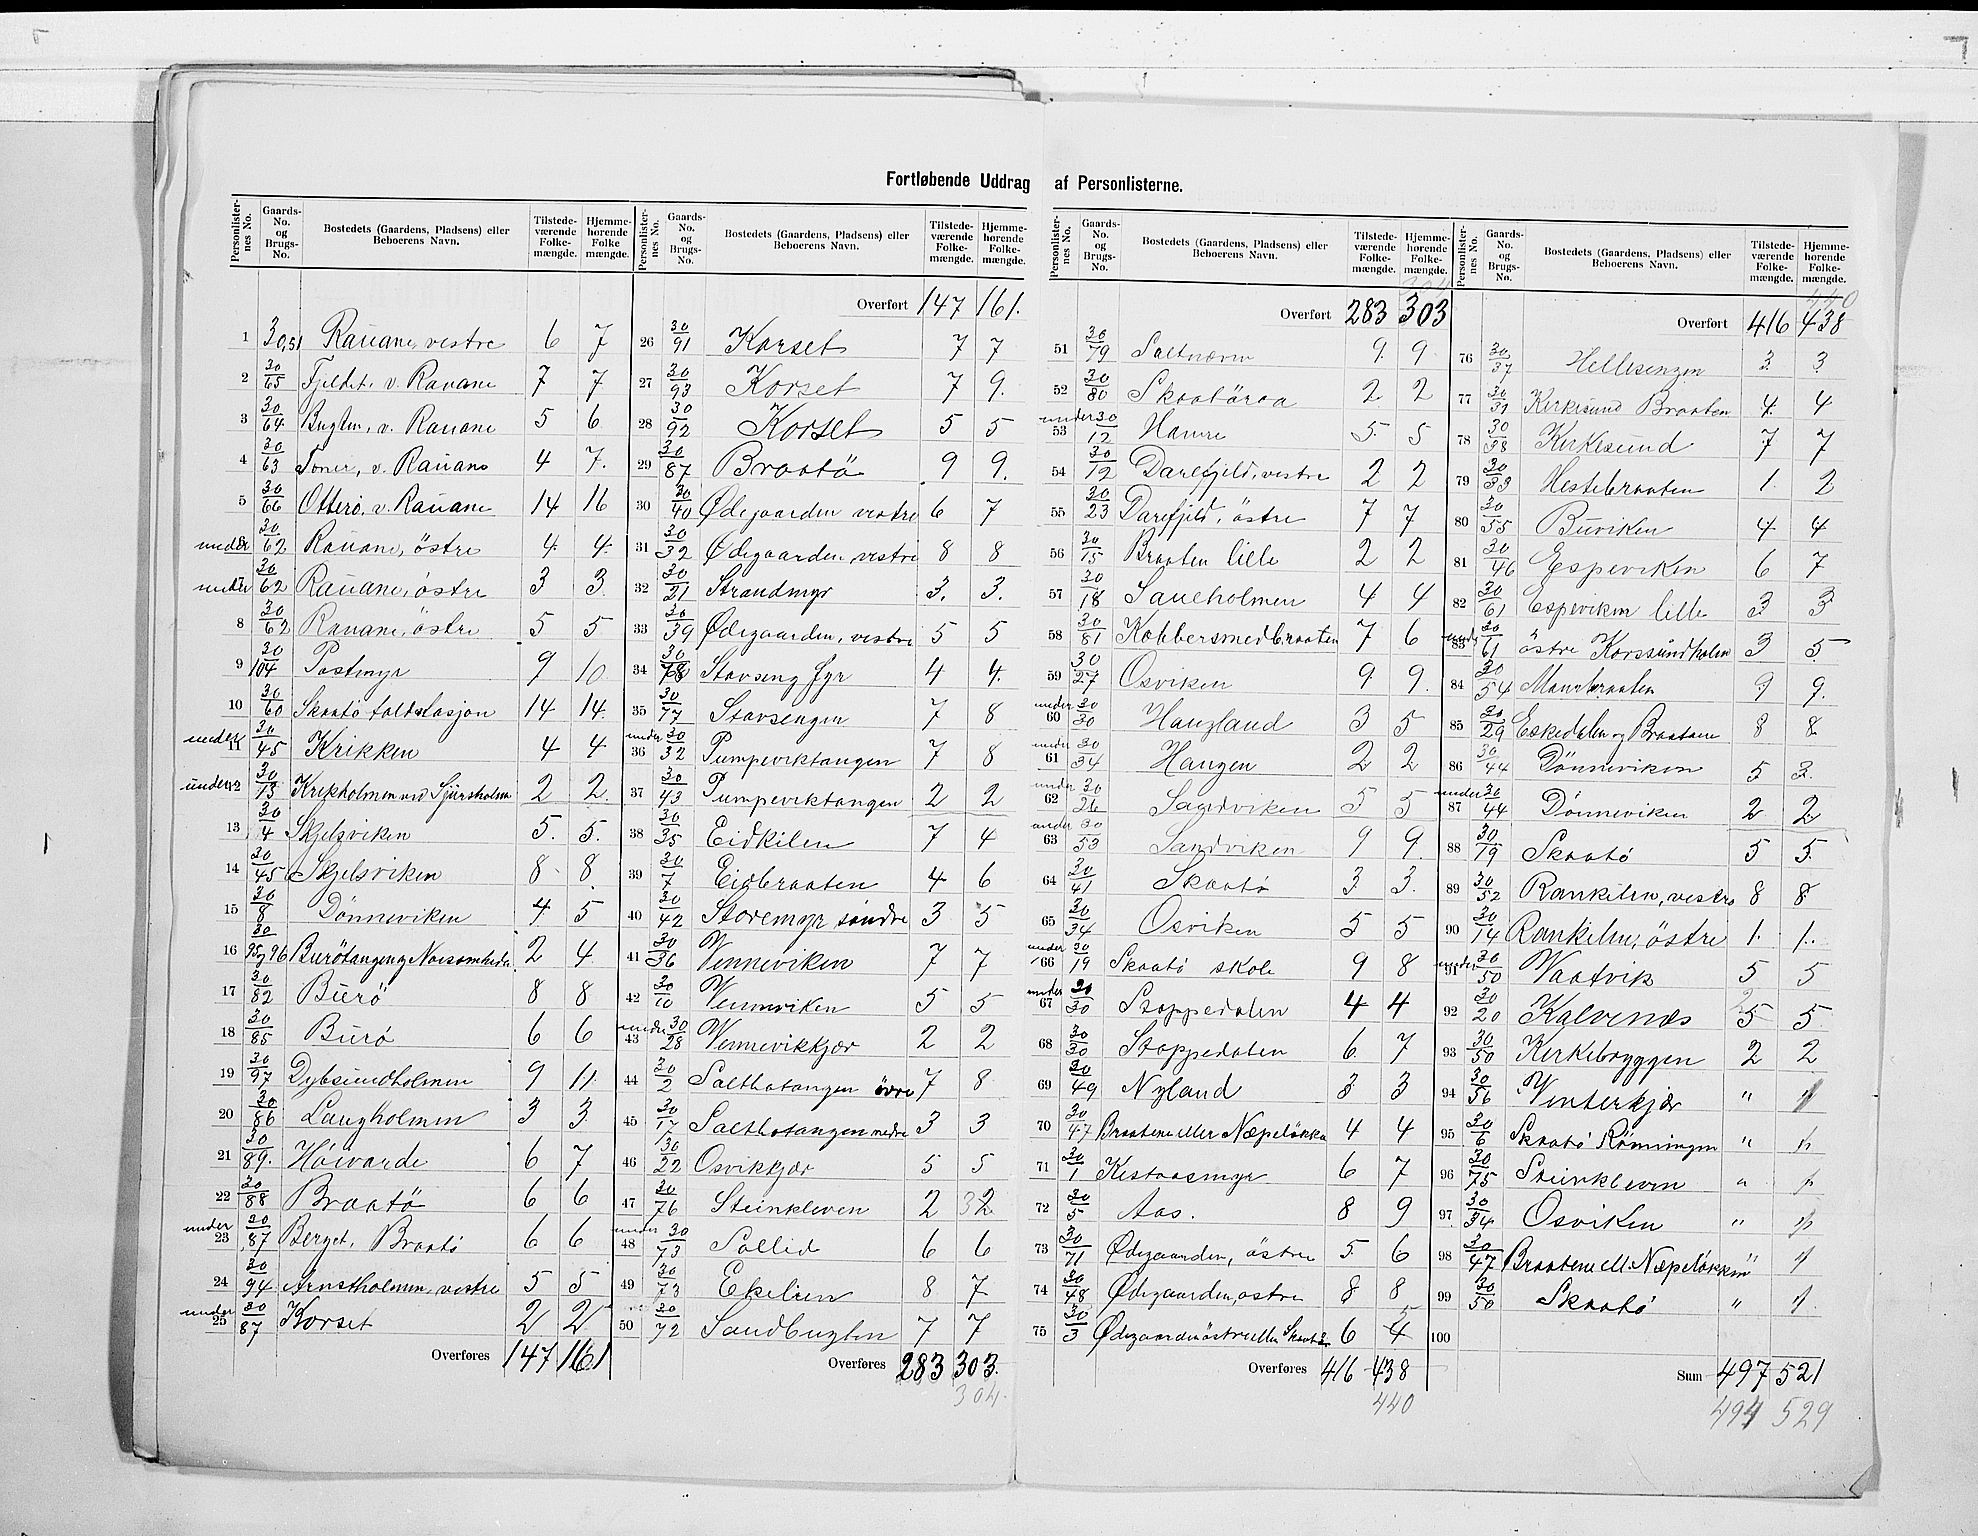 Fortløbende Uddrag af Personlisterne.
Personlisternes No. Gaards-No. og Brugs-No. Bostedets (Gaardens, Pladsens) eller Beboerens Navn. Tilstedeværende Folkemængde. Hjemmehørende Folkemængde.
1 30,51 Rauane, vestre 6 7
2 30/65 Fjeldet, v. Rauane 7 7
3 30/64 Bugten, v. Rauane 5 6
4 30/63 Toner, v. Rauane 4 7.
5 30/66 Otterö, v. Rauane 14 16
under 30/62 Rauane, östre 4. 4.
under 30/62 Rauane, östre 3 3.
8 30/62 Rauane, östre 5 5
9 30/104 Postmyr 9 10
10 30/60 Skaatö toldstasjon 14 14.
under 11 30/45 Krikken 4 4
under 12 30/13 Krikholmen ved Sjursholm 2 2.
13 30/4 Skjelsviken 5. 5.
14 30/45 Skjelsviken 8 8
15 30/8 Dönneviken 4 5
16 30/95 og 96 Burötangen og Noisomheden 2 4
17 30/82 Burö 8 8
18 30/85 Burö 6 6
19 30/97 Dybsundholmen 9 11
20 30/86 Langholmen 3 3
21 30/89. Höivarde 6 7
22 30/88 Braatö 6 6
under 23 30/87 Berget, Braatö 6 6
24 30/94 Arnstholmen, vestre 5 5
under 25 30/87 Korset 2 2
Overføres 147 161
Personlisternes No. Gaards-No. og Brugs-No. Bostedets (Gaardens, Pladsens) eller Beboerens Navn. Tilstedeværende Folkemængde. Hjemmehørende Folkemængde.
Overført 147 161.
26 30/91 Korset 7 7
27 30/93 Korset 7 9.
28 30/92 Korset 5 5
29 30/87 Braatö 9 9.
30 30/40 Ødegaarden vestre 6 7
31 30/32 Ødegaarden vestre 8 8
32 30/21 Strandmyr 3. 3.
33 30/39 Ødegaarden, vestre 5 5
34 30/78 Stavseng fyr 4 4.
35 30/77 Stavsengen 7 8
under 36 30/32 Pumpeviktangen 7 8
37 30/43 Pumpeviktangen 2 2
38 30/35 Eidkilen 7 4
39 30/7 Eidbraaten 4 6
40 30/42 Storemyr söndre 3 5
41 30/36 Venneviken 7 7
42 30/10 Venneviken 5 5
under 43 30/28 Vennevikkjær 2 2
44 30/2 Saltbotangen övre 7 8
45 30/17 Saltbotangen nedre 3 3
46 30/22 Osvikkjær 5 5
47 30/76 Steinkleven 2 32
under 48 30/73 Sollid 6 6
49 30/73 Ekelien 8 7
50 30/72 Sandbugten 7 7
Overføres 283 303.
304.
Personlisternes No. Gaards-No. og Brugs-No. Bostedets (Gaardens, Pladsens) eller Beboerens Navn. Tilstedeværende Folkemængde. Hjemmehørende Folkemængde.
304
Overført 283 303
51 30/79 Saltnæven 9. 9.
52 30/80 Skaatöraa 2 2
under 53 30/12 Havre 5. 5
54 30/12 Darefjeld, vestre 2 2
55 30/23 Darefjeld, östre 7 7
56 30/15 Braaten lille 2 2
57 30/18 Saueholmen 4 4
58 30/81 Kobbersmedbraaten 7 6
59 30/27 Osviken 9 9.
under 60 30/30 Haugland 3 5
under 61 30/34 Haugen 2 2
under 62 30/26 Sandviken 5 5
under 63 30/53 Sandviken 9 9.
64 30/41 Skaatö 3. 3.
65 30/34 Osviken 5 5
under 66 30/19 Skaatö skole 9 8
under 67 30/30 Stoppedalen 4 4
68 30/30 Stoppedalen 6 7
69 30/49 Nyland 3 3
70 30/47 Braatene eller Næpeløkka 4 4
71 30/1 Kistaasmyr 6 7
72 30/5 Aas. 8 9
73 30/71 Ødegaarden, östre 5 6
74 30/48 Ødegaarden, östre 8 8
75 30/3 Ødegaarden östre eller Skaatö 6 4 5
Overføres 416 438
440
Personlisternes No. Gaards-No. og Brugs-No. Bostedets (Gaardens, Pladsens) eller Beboerens Navn. Tilstedeværende Folkemængde. Hjemmehørende Folkemængde.
440
Overført 416 438
76 30/37 Hellesengen 3. 3
77 30/31 Kirkesund Braaten 4. 4
78 30/38 Kirkesund 7 7
79 30/33 Hestebraaten 1. 2
80 30/55 Buviken 4. 4
81 30/46 Espeviken 6 7
82 30/61 Espeviken lille 3 3
under 83 30/61 östre Korssundholm 3 5.
84 30/54 Maurbraaten 9 9.
85 30/29 Eskedalen og Braatane 8 8
86 30/44 Dönneviken 5 3.
under 87 30/44 Dönneviken 2 2.
88 30/19 Skaatö 5 5.
89 30/52 Rankilen, vestre 8 8
90 30/14 Rankilen, östre 1. 1.
under 91 30/50 Vaatvik 5 5
92 30/20 Kalvenæs 5 5.
93 30/50 Kirkebryggen 2 2
94 30/56 Vinterkjær " "
95 30/6 Skaatö Rönningen " "
96 30/75 Steinkleven " "
97 30/34 Osviken " "
98 30/47 Braatene ell. Næpeløkken " "
99 30/50 Skaatö " "
100
Sum 497 521
494 529